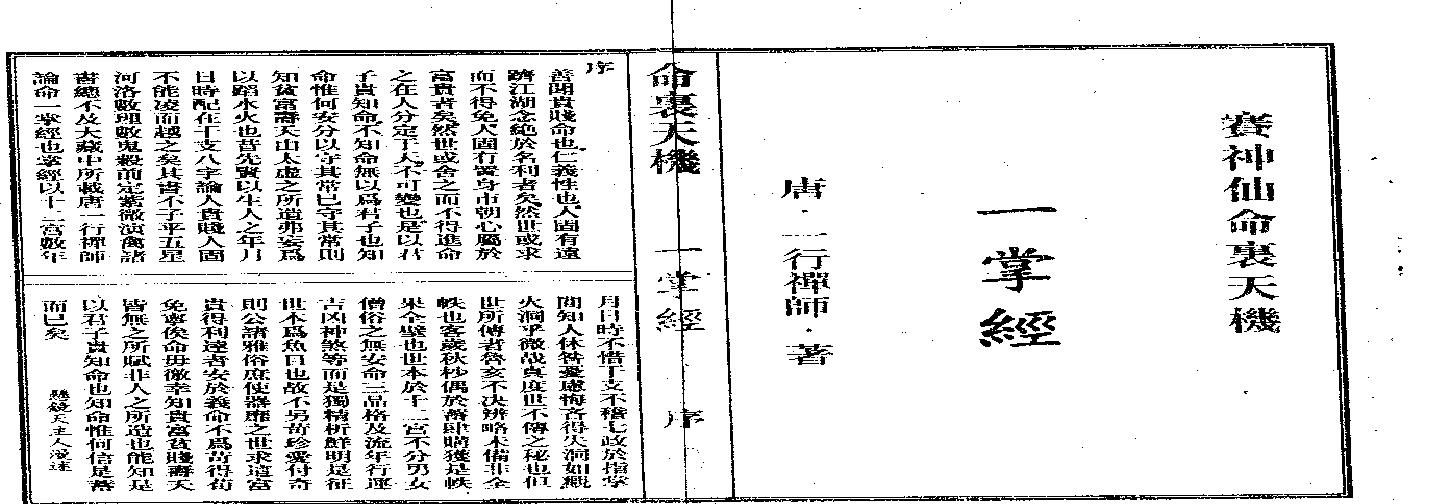 賽神仙命裏天機
一掌經
唐·一行禪師·著
命裏天機 一掌經 序
序
善聞貴賤命也仁義性也人固有遠
躋江湖念絕於名利者矣然世或求
而不得免人固有置身市朝心屬於
富貴者矣然世或舍之而不得進命
之在人分定于人不可變也是以君
子貴知命不知命無以爲君子也知
命惟何安分以守其常已守其常則
知貧富壽夭由太虛之所造弗妄爲
以蹈水火也昔先賢以生人之年月
日時配在干支八字論人貴賤人固
不能凌而越之矣其書不子平五星
河洛數理數鬼穀前定紫微演禽諸
書總不及大藏中所載唐一行禪師
論命一掌經也掌經以十二宮數年
月日時不惜干支不稽七政於指掌
間知人休咎憂慮悔吝得失洞如觀
火洞乎微哉真度世不傳之秘也但
世所傳者魯亥不決辨略未備非全
帙也客歲秋杪偶於舊肆購獲是帙
果全璧也世本於十二宮不分男女
僧俗之無安命三品格及流年行運
吉凶神煞等而是獨精析鮮明是征
世本爲魚目也故不另苛珍愛付奇
則公諸雅俗庶使器靡之世求這富
貴得利達者安於義命不爲苟得苟
免寧俟命毋徼幸知貴富貧賤壽夭
皆無之所賦非人之所造也能知是
以君子貴知命也知命惟何信是蓄
而已矣
懸鏡天主人漫述